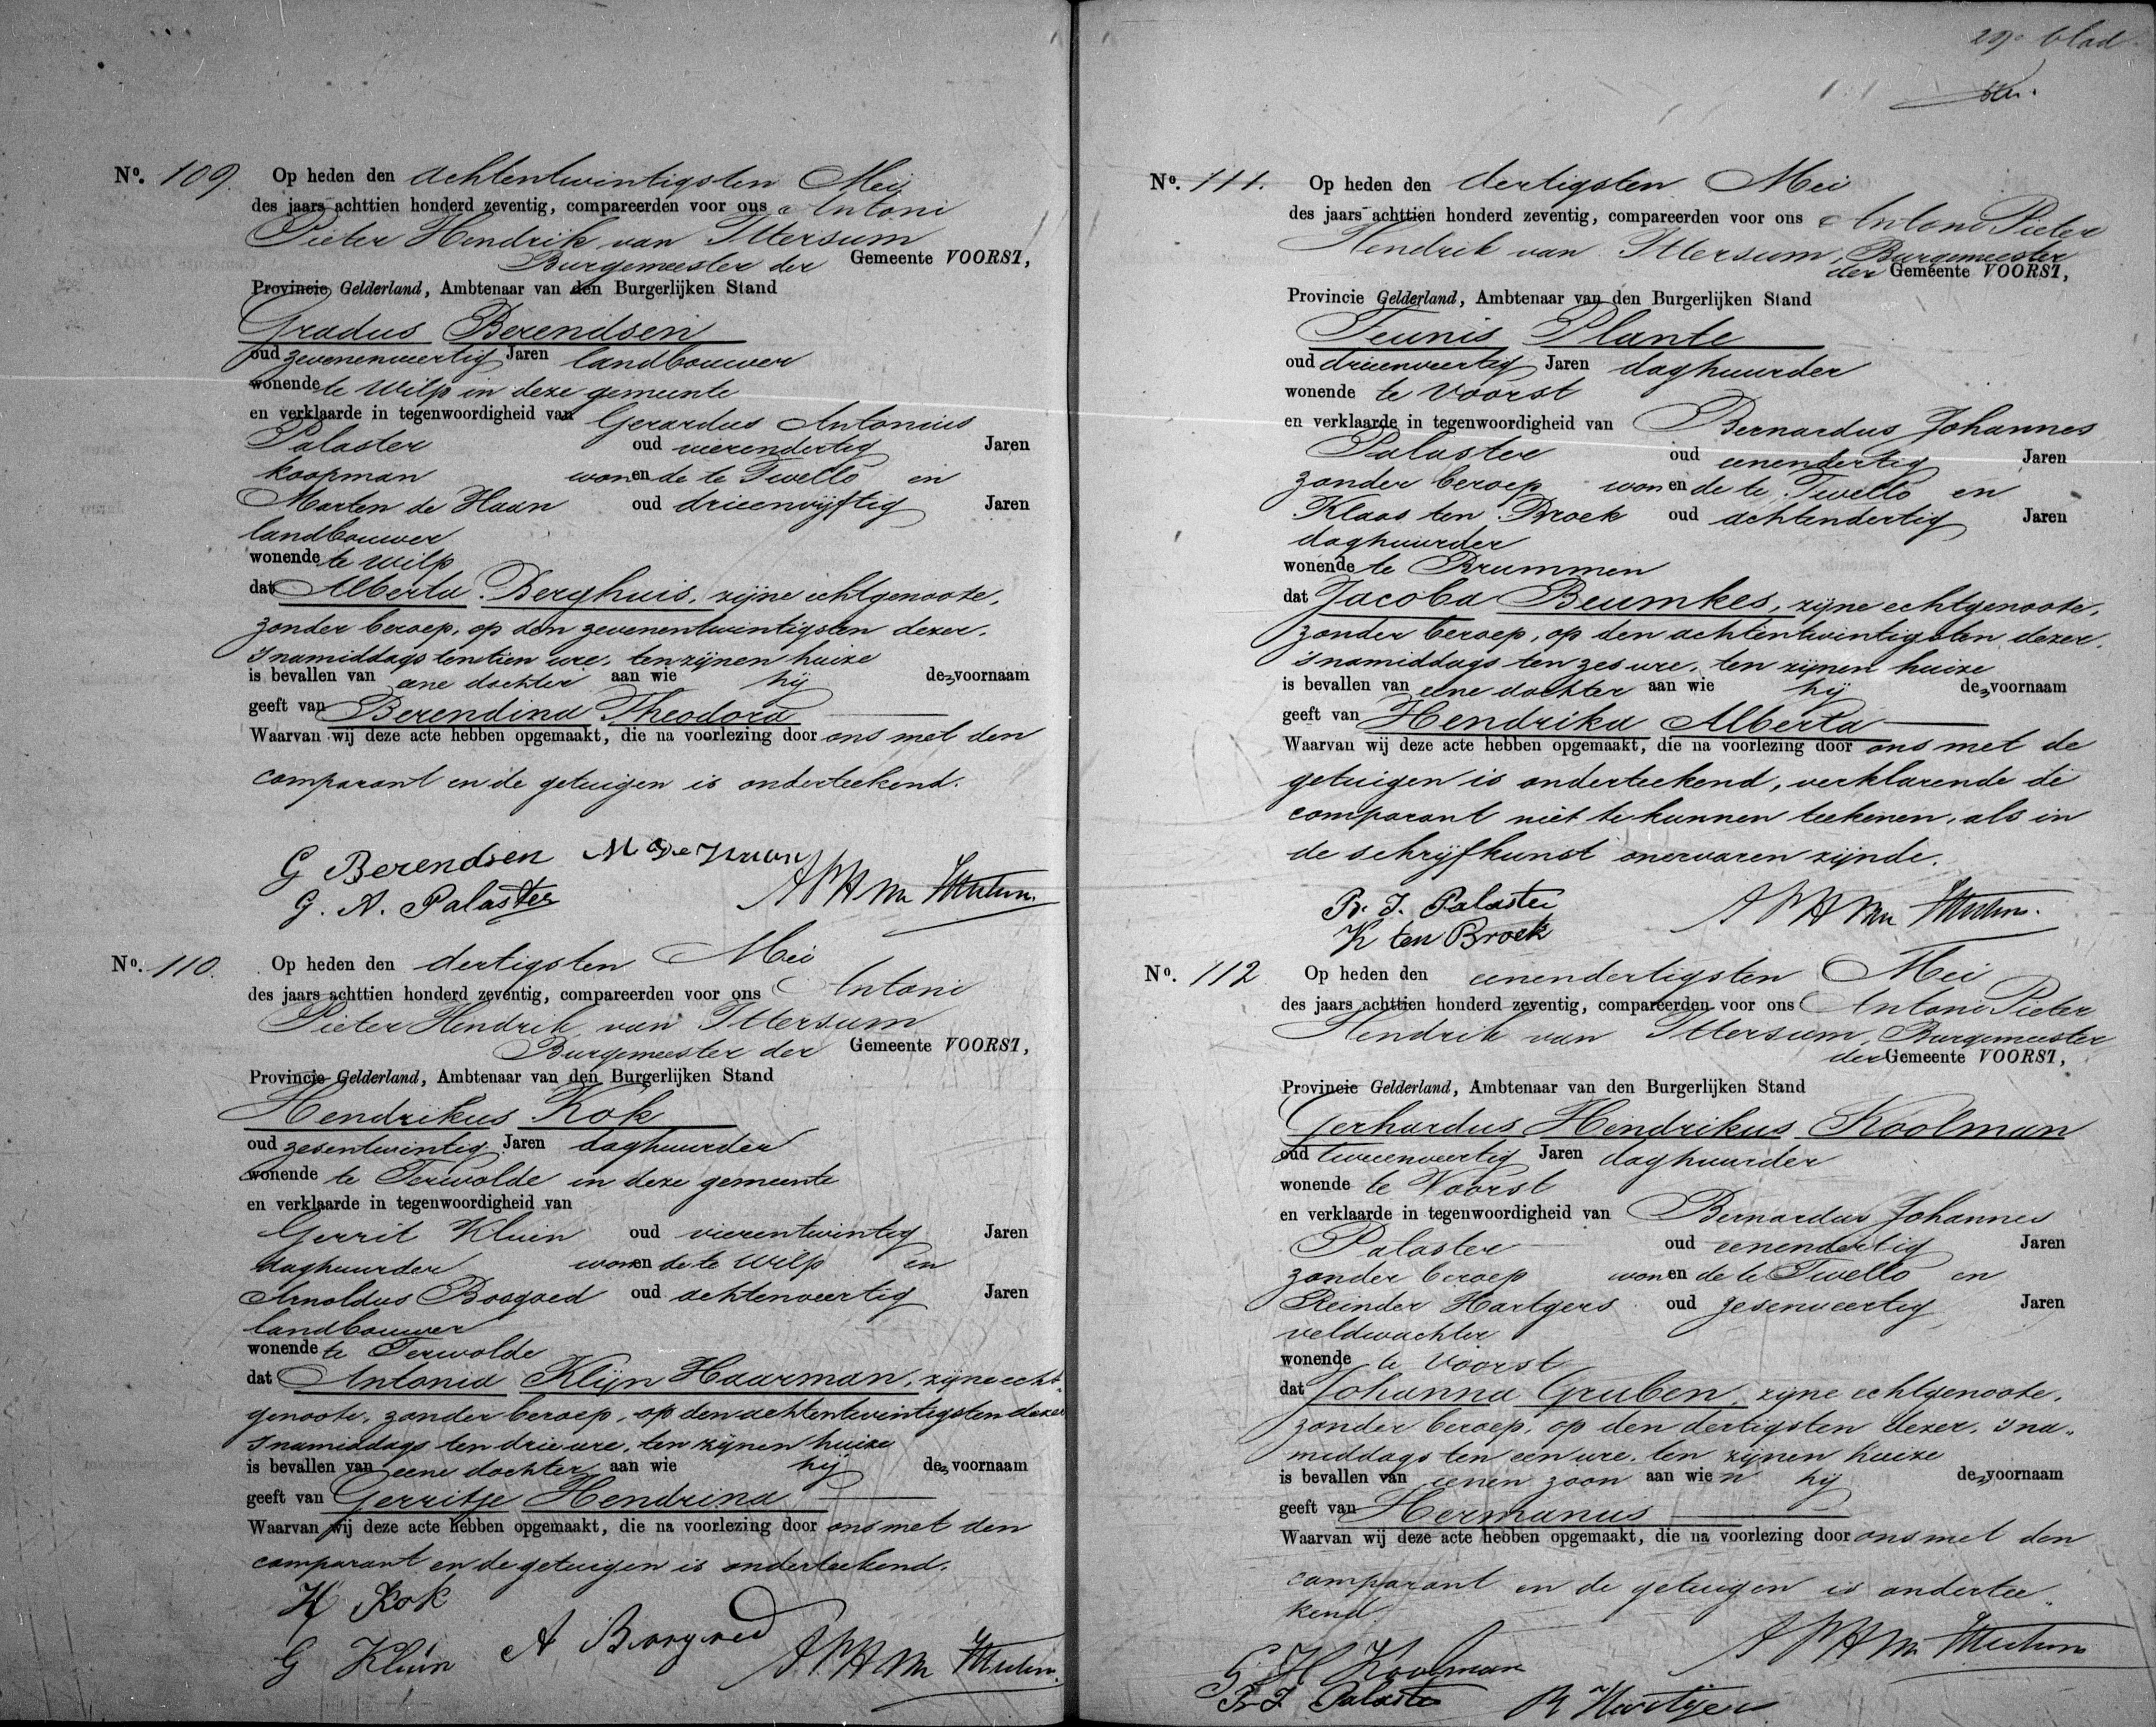 No. 109. Op heden den achtentwintigsten Mei
des jaars achttien honderd zeventig, compareerden voor ons Antoni
Pieter Hendrik van Ittersum
Burgemeester der Gemeente VOORST,
Provincie Gelderland, Ambtenaar van den Burgerlijken Stand
Gradus Berendsen
oud zevenenveertig Jaren landbouwer
wonende te Wilp in deze gemeente
en verklaarde in tegenwoordigheid van Gerardus Antonius
Palaster oud vierendertig Jaren
koopman wonende te Twello en
Marten de Haan oud drieenvijftig Jaren
landbouwer
wonende te Wilp
dat Alberta Berghuis, zijne echtgenoote,
zonder beroep, op den zevenentwintigsten dezer,
snamiddags ten tien ure, ten zijnen huize
is bevallen van eene dochter aan wie hij de voornaam
geeft van Berendina Theodora
Waarvan wij deze acte hebben opgemaakt, die na voorlezing door ons met den
comparant en de getuigen is onderteekend.
G Berendsen M de Haan
G. A. Palaster APH van Ittersum
No. 110. Op heden den dertigsten Mei
des jaars achttien honderd zeventig, compareerden voor ons Antoni
Pieter Hendrik van Ittersum
Burgemeester der Gemeente VOORST,
Provincie Gelderland, Ambtenaar van den Burgerlijken Stand
Hendrikus Kok
oud zesentwintig Jaren daghuurder
wonende te Terwolde in deze gemeente
en verklaarde in tegenwoordigheid van
Gerrit Kluin oud vierentwintig Jaren
daghuurder wonende te Wilp en
Arnoldus Boogaed oud achtenveertig Jaren
landbouwer
wonende te Terwolde
dat Antonia Klijn Haarman, zijne echt-
genoote, zonder beroep, op den achtentwintigsten dezer
snamiddags ten drie ure, ten zijnen huize
is bevallen van eene dochter aan wie hij de voornaam
geeft van Gerritje Hendrina
Waarvan wij deze acte hebben opgemaakt, die na voorlezing door ons met den
comparant en de getuigen is onderteekend.
H Kok
G Kluin A APH van Ittersum
29e blad
No. 111. Op heden den dertigsten Mei
des jaars achttien honderd zeventig, compareerden voor ons Antoni Pieter
Hendrik van Ittersum, Burgemeester
der Gemeente VOORST,
Provincie Gelderland, Ambtenaar van den Burgerlijken Stand
Teunis Plante
oud drieenveertig Jaren daghuurder
wonende te Voorst
en verklaarde in tegenwoordigheid van Bernardus Johannes
Palaster oud eenendertig Jaren
zonder beroep wonende te Twello en
Klaas ten Broek oud achtendertig Jaren
daghuurder
wonende te Brummen
dat Jacoba Beumkes, zijne echtgenoote,
zonder beroep, op den achtentwintigsten dezer,
's namiddags ten zes ure, ten zijnen huize
is bevallen van eene dochter aan wie hij de voornaam
geeft van Hendrika Alberta
Waarvan wij deze acte hebben opgemaakt, die na voorlezing door ons met de
getuigen is onderteekend, verklarende de
comparant niet te kunnen teekenen, als in
de schrijfkunst onervaren zijnde.
B. J. Palaster
K ten Broek APH van Ittersum.
No. 112 Op heden den eenendertigsten Mei
des jaars achttien honderd zeventig, compareerden voor ons Antoni Pieter
Hendrik van Ittersum, Burgemeester
der Gemeente VOORST,
Provincie Gelderland, Ambtenaar van den Burgerlijken Stand
Gerhardus Hendrikus Koolman
oud tweeenveertig Jaren daghuurder
wonende te Voorst
en verklaarde in tegenwoordigheid van Bernardus Johannes
Palaster oud eenendertig Jaren
zonder beroep wonende te Twello en
Reinder Hartgers oud zesenveertig Jaren
veldwachter
wonende te Voorst
dat Johanna Gruben, zijne echtgenoote,
zonder beroep, op den dertigsten dezer, sna-
middags ten een ure, ten zijnen huize
is bevallen van eenen zoon aan wien hij de voornaam
geeft van Hermanus
Waarvan wij deze acte hebben opgemaakt, die na voorlezing door ons met den
comparant en de getuigen is ondertee-
kend.
APH van Ittersum
G H Koolman
B. J. Palaster R Hartgers